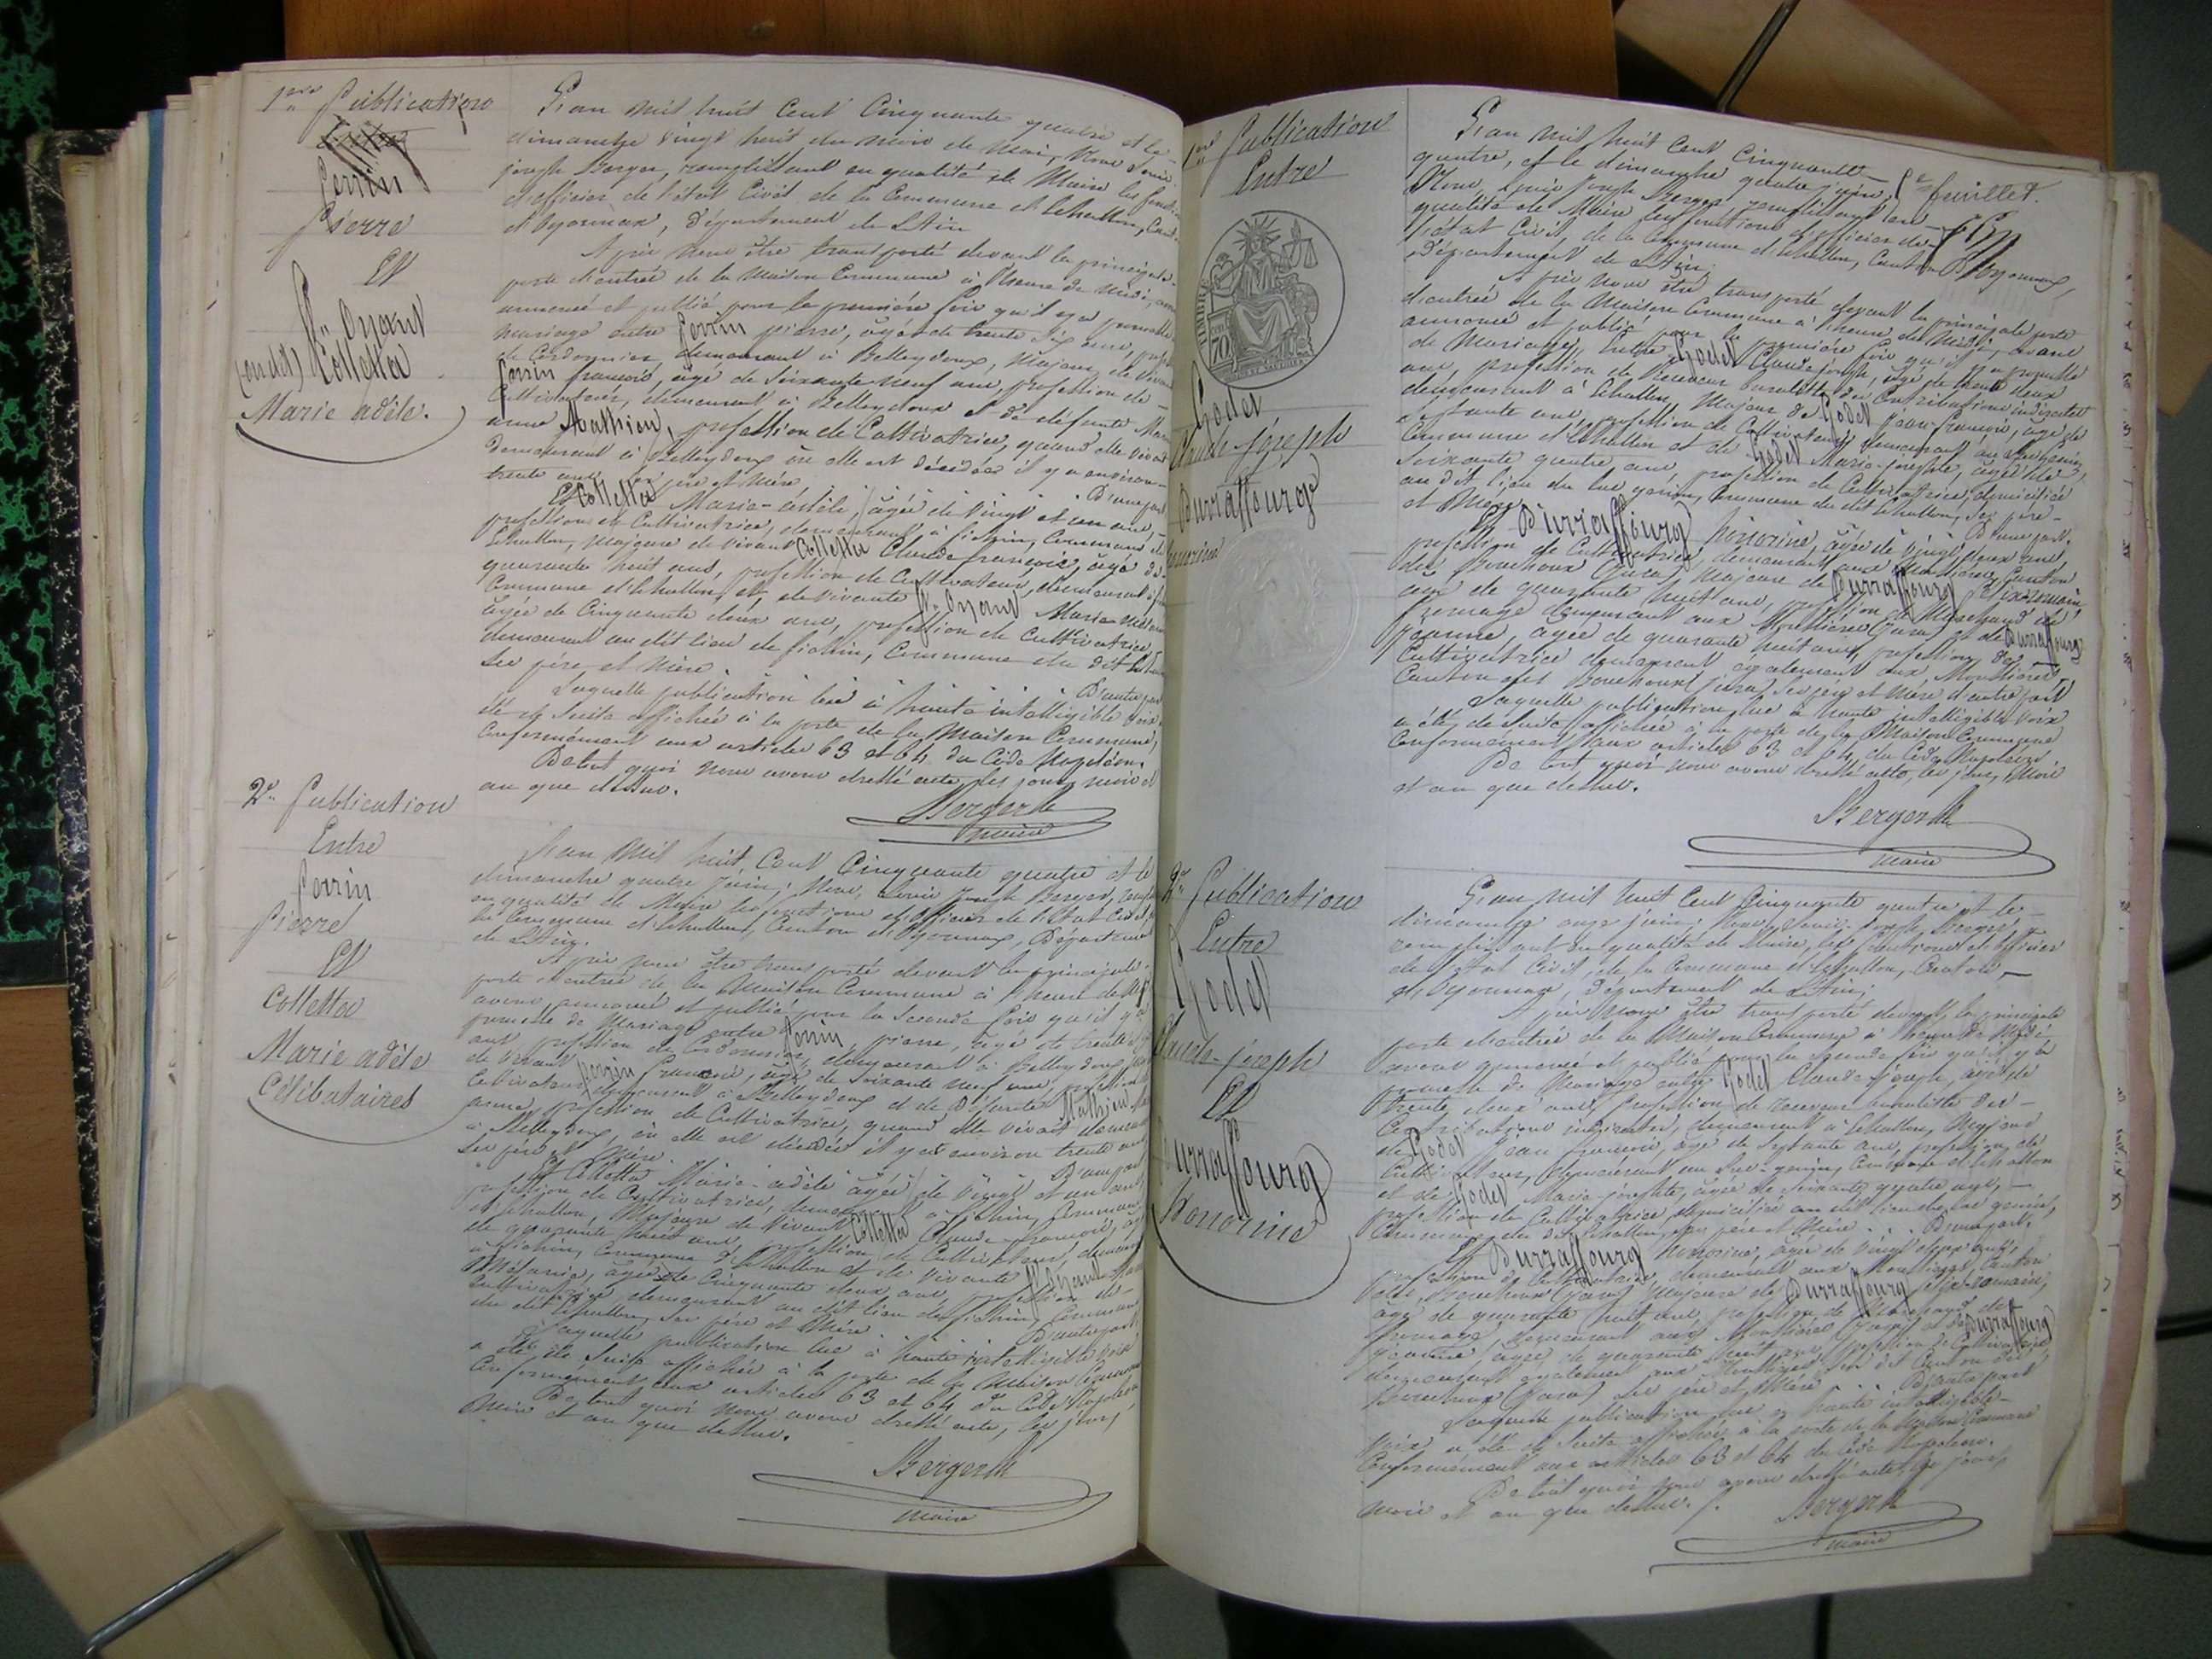 1ère Publication
Perrin
Pierre
Et
St Oyant
(ou dit) Colletta
Marie adèle.
L'an mil huit Cent Cinquante quatre et le
dimanche vingt huit du mois de Mai, Nous Louis
joseph Berger, remplissant en qualité de Maire les fonct
d'officier de l'état Civil de la Commune d'Echallon, Cant
d'Oyonnax, Département de L'Ain
Après nous être transporté devant la principale
porte d'entrée de la Maison Commune à l'heure de Midi, avons
annoncé et publié pour la première fois qu'il y a promesse
mariage entre Perrin pierre, âgé de trente six ans, prof
de Cordonnier, demeurant à Belleydoux, Majeur de Vivant
Perrin françois, âgé de Soixante neuf ans, profession de
Cultivateur, demeurant à Belleydoux et de défunte Marie
anne Mathieu, profession de Cultivatrice, quand elle vivait
demeurant à Belleydoux où elle est décédée il y a environ
trente ans, Ses père et Mère. D'une part
Et Colletta Marie-adèle, âgée de Vingt et un ans,
profession de Cultivatrice, demeurant à fichin, Commune d
Echallon, Majeure de Vivant Colletta Claude françois, âgé de
quarante huit ans, profession de Cultivateur, demeurant à
Commune d'Echallon et de Vivante St Oyant Marie-Mélanie
âgée de Cinquante deux ans, profession de Cultivatrice,
demeurant au dit lieu de fichin, Commune du dit Echallon
Ses père et Mère. D'autre part
Laquelle publication lue à haute intelligible voix
été de Suite affichée à la porte de la Maison Commune,
Conformément aux articles 63 et 64 du Code Napoléon.
De tout quoi nous avons dressé acte les jour, mois et
an que dessus.
Berger
maire
2e Publication
Entre
Perrin
Pierre
Et
Colletta
Marie adèle
Célibataires
L'an Mil huit Cent Cinquante quatre et le
dimanche quatre Juin; Nous, Louis Joseph Berger, remp
en qualité de Maire les fonctions d'Officier de l'Etat Civil
la Commune d'Echallon, Canton d'Oyonnax, Département
de L'Ain.
Après nous être transporté devant la principale
porte d'entrée de la Maison Commune à l'heure de Midi
avons annoncé et publié pour la Seconde fois qu'il y a
promesse de Mariage entre Perrin pierre, âgé de trente six
ans profession de Cordonnier, demeurant à Belleydoux,
de Vivant Perrin François, âgé de Soixante neuf ans, profession
Cultivateur, demeurant à Belleydoux et de Défunte Mathieu Marie
anne profession de Cultivatrice, quand elle vivait demeurant
à Belleydoux, où elle est décédée il y a environ trente ans
Ses père et Mère. D'une part
Et Colletta Marie-adèle âgée de Vingt et un ans,
profession de Cultivatrice, demeurant à fichin, Commune
d'Echallon, Majeure de Vivant Colletta Claude-françois, âgé
de quarante huit ans, profession de Cultivateur, demeurant
à fichin, Commune d'Echallon et de Vivante St Oyant Marie
Mélanie, âgée de Cinquante deux ans, profession de
Cultivatrice demeurant au dit lieu de fichin, Commune
du dit Echallon, Ses père et Mère. D'autre part
Laquelle publication lue à haute intelligible voix
a été de Suite affichée à la porte de la Maison Commune
Conformément aux articles 63 et 64 du Code Napoléon
De tout quoi nous avons dressé acte, les jour,
Mois et an que dessus.
Berger
maire
1ère Publication
Entre
TIMBRE
70
Godet
Claude-joseph
Durraffourg
honorine
L'an mil huit Cent Cinquante
quatre, et le dimanche quatre juin;
Nous, Louis Joseph Berger, remplissant en
qualité de Maire les fonctions d'officier de
l'état Civil de la Commune d'Echallon, Canton d'Oyonnax,
Département de L'Ain;
feuillet.
Après nous être transporté devant la principale porte
d'entrée de la Maison Commune à l'heure de Midi, avons
annoncé et publié pour la première fois qu'il y a promesse
de Mariage, Entre Godet Claude joseph, âgé de trente deux
ans, profession de Receveur buraliste des Contributions indirectes
demeurant à Echallon, Majeur de Godet Jean françois, âgé de
Septante ans, profession de Cultivateur, demeurant au Lac genin,
Commune d'Echallon et de Godet Marie-josephte, âgée de
Soixante quatre ans, profession de Cultivatrice, domiciliée
au dit lieu du Lac genin, Commune du dit Echallon, Ses père
et Mère. D'une part.
Et Durraffourg honorine, âgée de Vingt deux ans,
profession de Cultivatrice, demeurant aux Moussières, Canton
des Bouchoux (Jura) Majeure de Durraffourg félix-romain,
âgé de quarante huit ans, profession de Marchand de
fromage demeurant aux Moussières (Jura) et de Durraffourg
jeanne, âgée de quarante huit ans, profession de
Cultivatrice demeurant également aux Moussières,
Canton des Bouchoux (jura) Ses père et Mère d'autre part
Laquelle publication lue à haute intelligible voix
a été de Suite affichée à la porte de la Maison Commune
Conformément aux articles 63 et 64 du Code Napoléon
De tout quoi nous avons dressé acte, les jour, Mois
et an que dessus.
Berger
maire
2e Publication
Entre
Godet
Claude-joseph
Et
Durraffourg
honorine
L'an mil huit Cent Cinquante quatre et le
dimanche onze juin; Nous, Louis-Joseph Berger,
remplissant en qualité de Maire, les fonctions d'officier
de l'état Civil, de la Commune d'Echallon, Canton
d'Oyonnax, Département de L'Ain;
Après nous être transporté devant la principale
porte d'entrée de la Maison Commune à l'heure de Midi,
avons annoncé et publié pour la Seconde fois qu'il y a
promesse de Mariage entre Godet Claude-joseph, âgé de
trente deux ans, profession de receveur buraliste des
Contributions indirectes, demeurant à Echallon, Majeur
de Godet Jean françois, âgé de Septante ans, profession de
Cultivateur, demeurant au Lac-genin, Commune d'Echallon
et de Godet Marie-josephte, âgée de soixante quatre ans,
profession de Cultivatrice domiciliée au dit lieu du Lac genin,
Commune du dit Echallon, Ses père et Mère... D'une part.
Et Durraffourg honorine, âgée de Vingt deux ans,
profession de Cultivatrice, demeurant aux Moussières, Canton
des Bouchoux (Jura) Majeure de Durraffourg félix-romain,
âgé de quarante huit ans, profession de Marchand de
fromage, demeurant aux Moussières (Jura) et de Durraffourg
jeanne, âgée de quarante huit ans, profession de Cultivatrice
demeurant également aux Moussières, Canton des
Bouchoux (Jura) Ses père et Mère. D'autre part
Laquelle publication lue à haute intelligible
voix, a été de Suite affichée à la porte de la Maison Commune
Conformément aux articles 63 et 64 du Code Napoléon.
De tout quoi nous avons dressé acte, les jour,
Mois et an que dessus.
Berger
maire